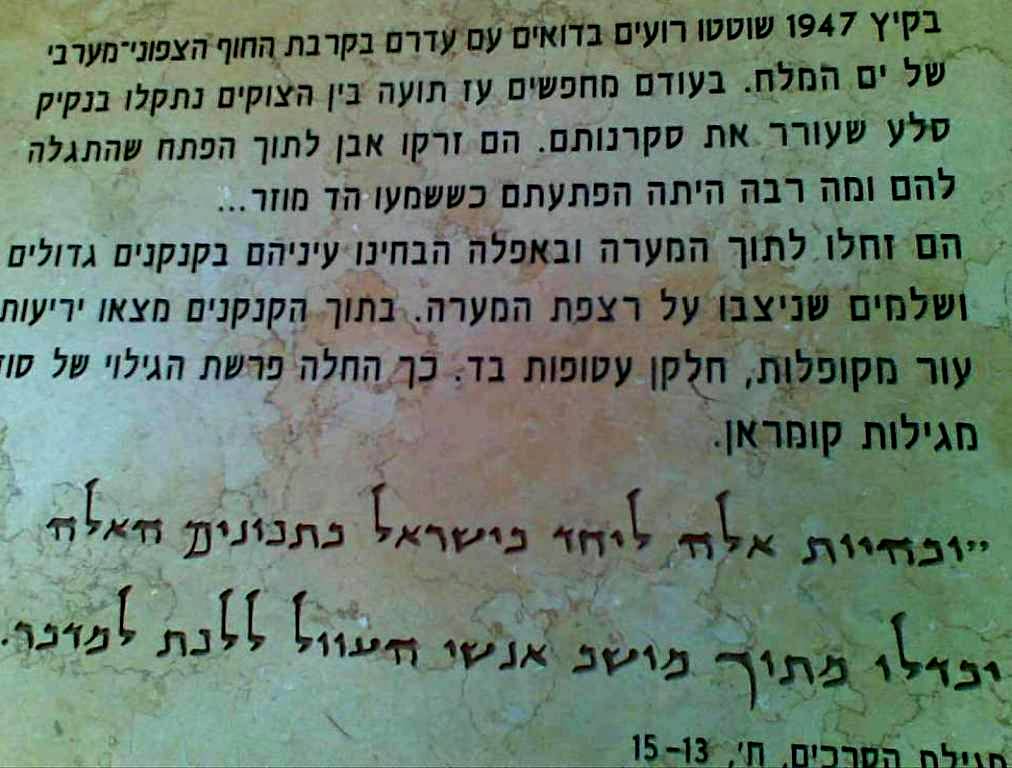 בקיץ 1947 שוטטו רועים בדואים עם עדרם בקרבת החוף הצפוני־מערבי
של ים המלח. בעודם מחפשים עז תועה בין הצוקים נתקלו בנקיק
סלע שעורר את סקרנותם. הם זרקו אבן לתוך הפתח שהתגלה
להם ומה רבה היתה הפתעתם כששמעו הד מוזר...
הם זחלו לתוך המערה ובאפלה הבחינו עיניהם בקנקנים גדולים
ושלמים שניצבו על רצפת המערה. בתוך הקנקנים מצאו יריעות
עור מקופלות, חלקן עטופות בד. כך החלה פרשת הגילוי של
מגילות קומראן.
"ובהיות אלה ליחד בישראל בתכונים האלה
יבדלו מתוך מושב אנשי העוול ללכת למדבר.
מגילת הסרכים, ח', 13–15